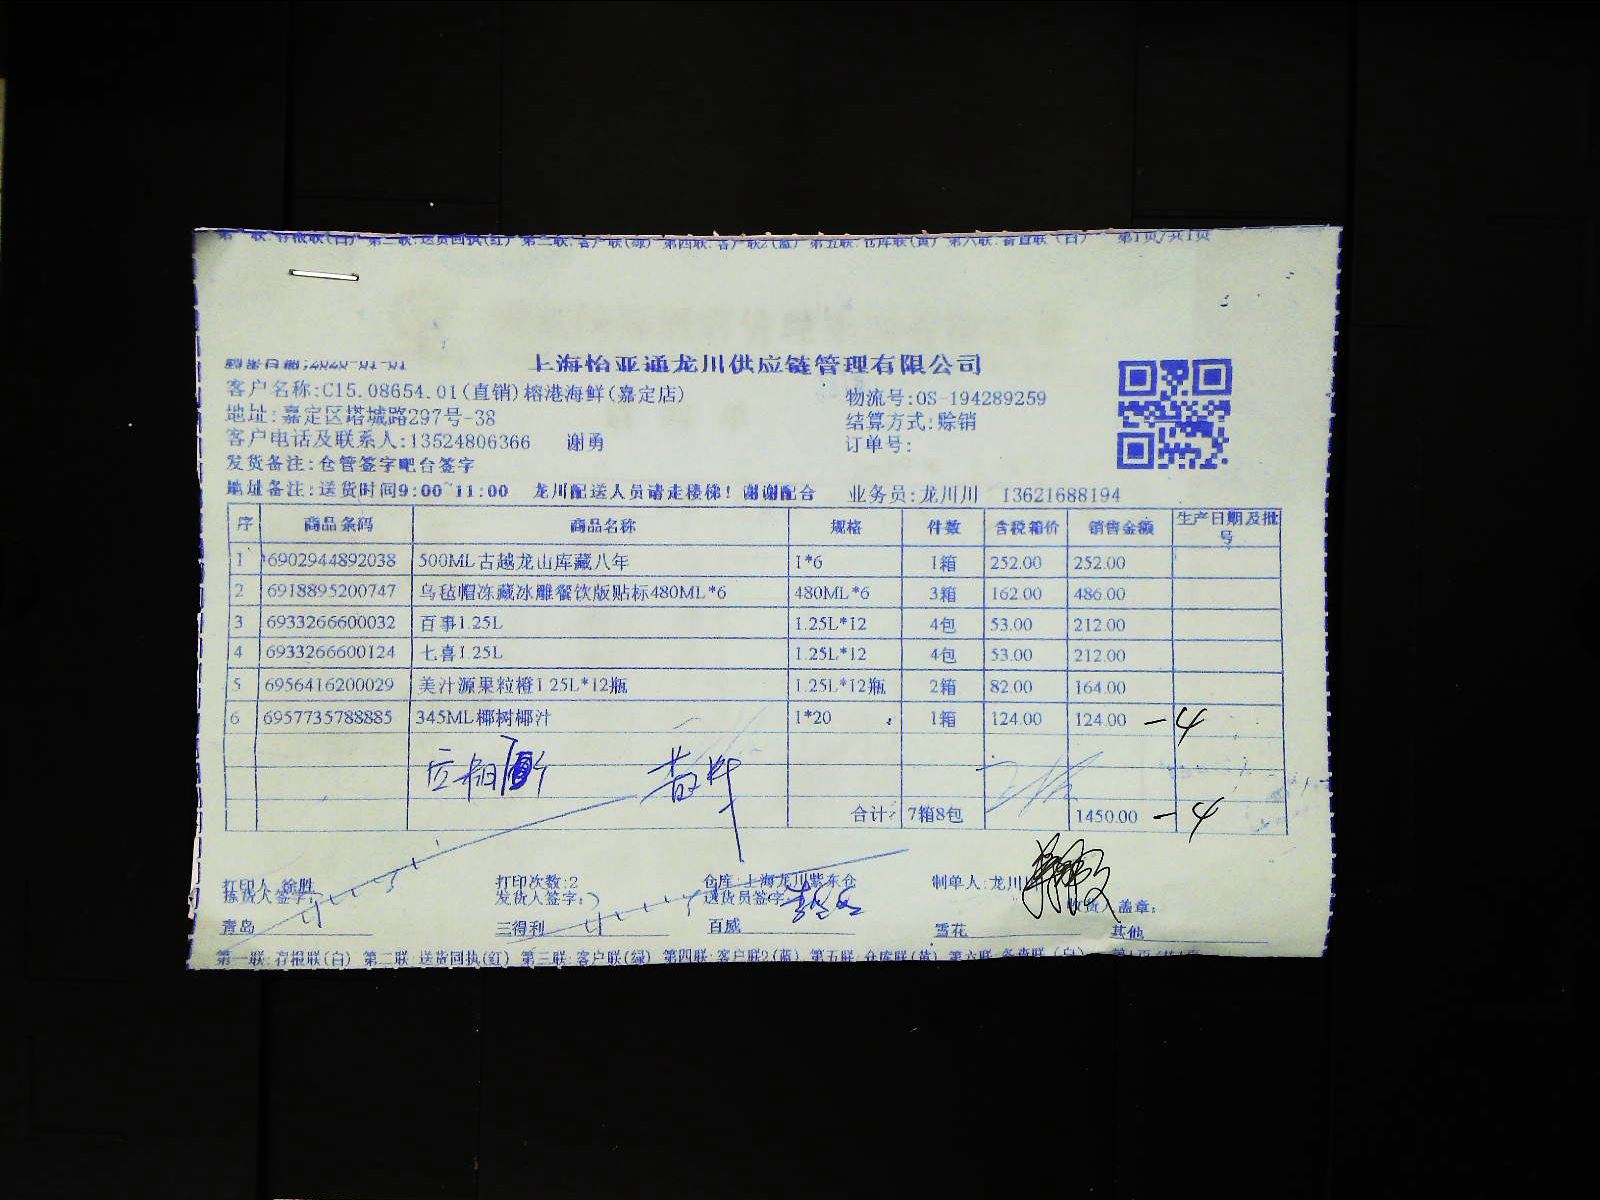 第一联:存根联(白) 第二联:送货回执(红) 第三联:客户联(绿) 第四联:客户联2(蓝) 第五联:仓库联(黄) 第六联:备查联(白) 第1页/共1页
上海怡亚通龙川供应链管理有限公司
客户名称:C15.08654.01(直销)榕港海鲜(嘉定店) 物流号:OS-194289259
地址:嘉定区塔城路297号-38 结算方式:赊销
客户电话及联系人:13524806366 谢勇 订单号:
发货备注:仓管签字吧台签字
地址备注:送货时间9:00~11:00 龙川配送人员请走楼梯!谢谢配合 业务员:龙川川 13621688194
序 商品条码 商品名称 规格 件数 含税箱价 销售金额 生产日期及批号
1 6902944892038 500ML古越龙山库藏八年 1*6 1箱 252.00 252.00
2 6918895200747 乌毡帽冻藏冰雕餐饮版贴标480ML*6 480ML*6 3箱 162.00 486.00
3 6933266600032 百事1.25L 1.25L*12 4包 53.00 212.00
4 6933266600124 七喜1.25L 1.25L*12 4包 53.00 212.00
5 6956416200029 美汁源果粒橙1.25L*12瓶 1.25L*12瓶 2箱 82.00 164.00
6 6957735788885 345ML椰树椰汁 1*20 1箱 124.00 124.00 -4
合计: 7箱8包 1450.00 -4
打印人:徐胜 打印次数:2 仓库:上海龙川紫东仓 制单人:龙川
拣货人签字: 发货人签字: 送货员签字: 收货人盖章:
青岛 三得利 百威 雪花 其他
第一联:存根联(白) 第二联:送货回执(红) 第三联:客户联(绿) 第四联:客户联2(蓝) 第五联:仓库联(黄) 第六联:备查联(白)